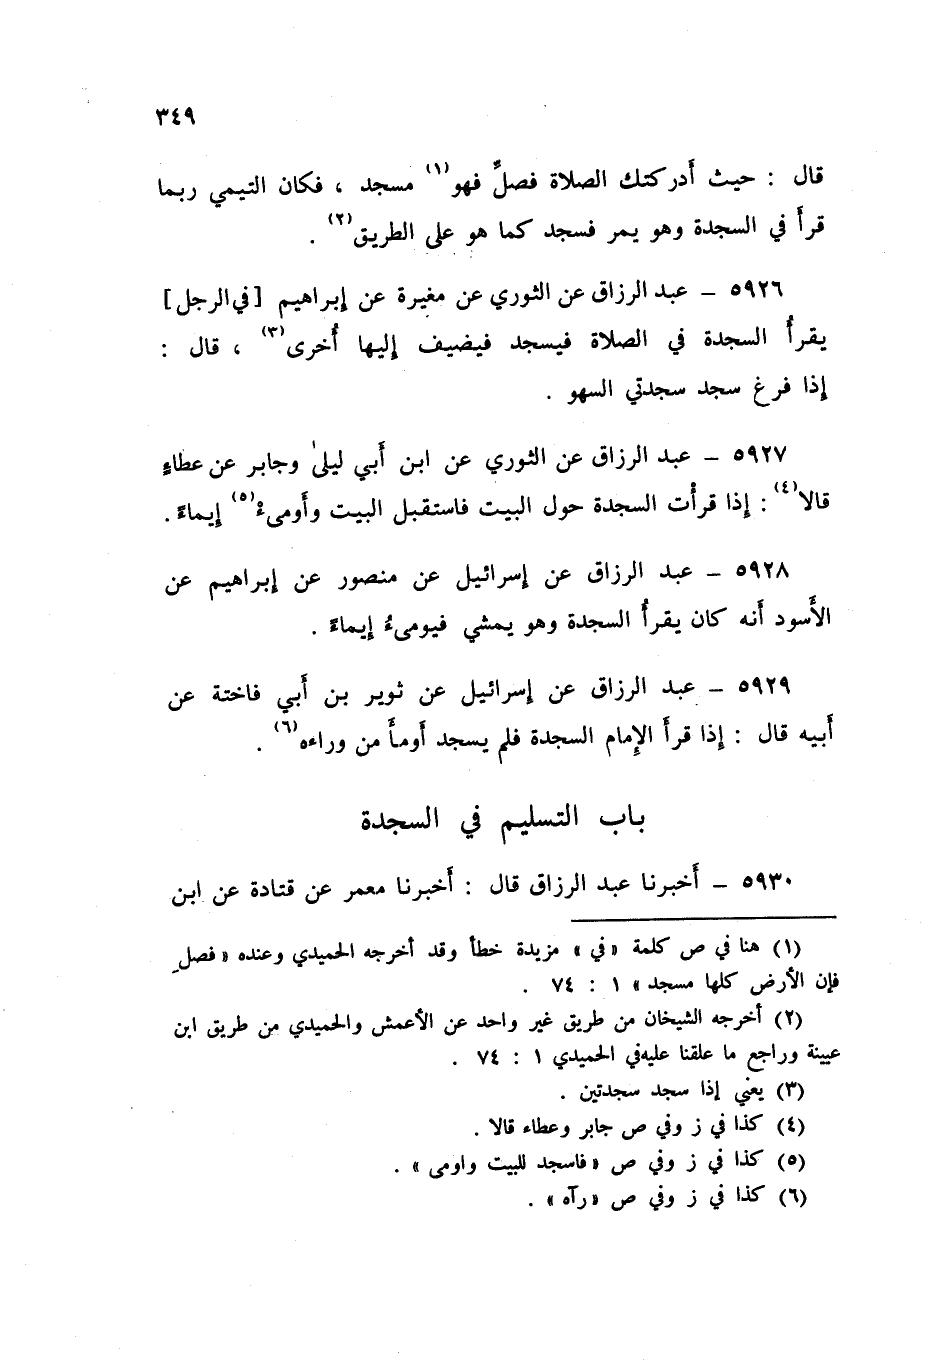 ٣٤٩
قال : حيث أدركتك الصلاة فصلِّ فهو(١) مسجد ، فكان التيمي ربما
قرأ في السجدة وهو يمر فسجد كما هو على الطريق(٢) .
٥٩٢٦ – عبد الرزاق عن الثوري عن مغيرة عن إبراهيم [في الرجل]
يقرأُ السجدة في الصلاة فيسجد فيضيف إليها أُخرى(٣) ، قال :
إذا فرغ سجد سجدتي السهو .
٥٩٢٧ – عبد الرزاق عن الثوري عن ابن أبي ليلىٰ وجابر عن عطاءٍ
قالا(٤) : إذا قرأْت السجدة حول البيت فاستقبل البيت وأَومىءْ(٥) إيماءً .
٥٩٢٨ – عبد الرزاق عن إسرائيل عن منصور عن إبراهيم عن
الأَسود أَنه كان يقرأُ السجدة وهو يمشي فيومىءُ إيماءً .
٥٩٢٩ – عبد الرزاق عن إسرائيل عن ثوير بن أَبي فاختة عن
أَبيه قال : إذا قرأَ الإِمام السجدة فلم يسجد أَومأَ من وراءه(٦) .
باب التسليم في السجدة
٥٩٣٠ – أَخبرنا عبد الرزاق قال : أَخبرنا معمر عن قتادة عن ابن
(١) هنا في ص كلمة « في » مزيدة خطأ وقد أخرجه الحميدي وعنده « فصلِ
فإن الأرض كلها مسجد » ١ : ٧٤ .
(٢) أخرجه الشيخان من طريق غير واحد عن الأعمش والحميدي من طريق ابن
عيينة وراجع ما علقنا عليه في الحميدي ١ : ٧٤ .
(٣) يعني إذا سجد سجدتين .
(٤) كذا في ز وفي ص جابر وعطاء قالا .
(٥) كذا في ز وفي ص « فاسجد للبيت واومى » .
(٦) كذا في ز وفي ص « رآه » .